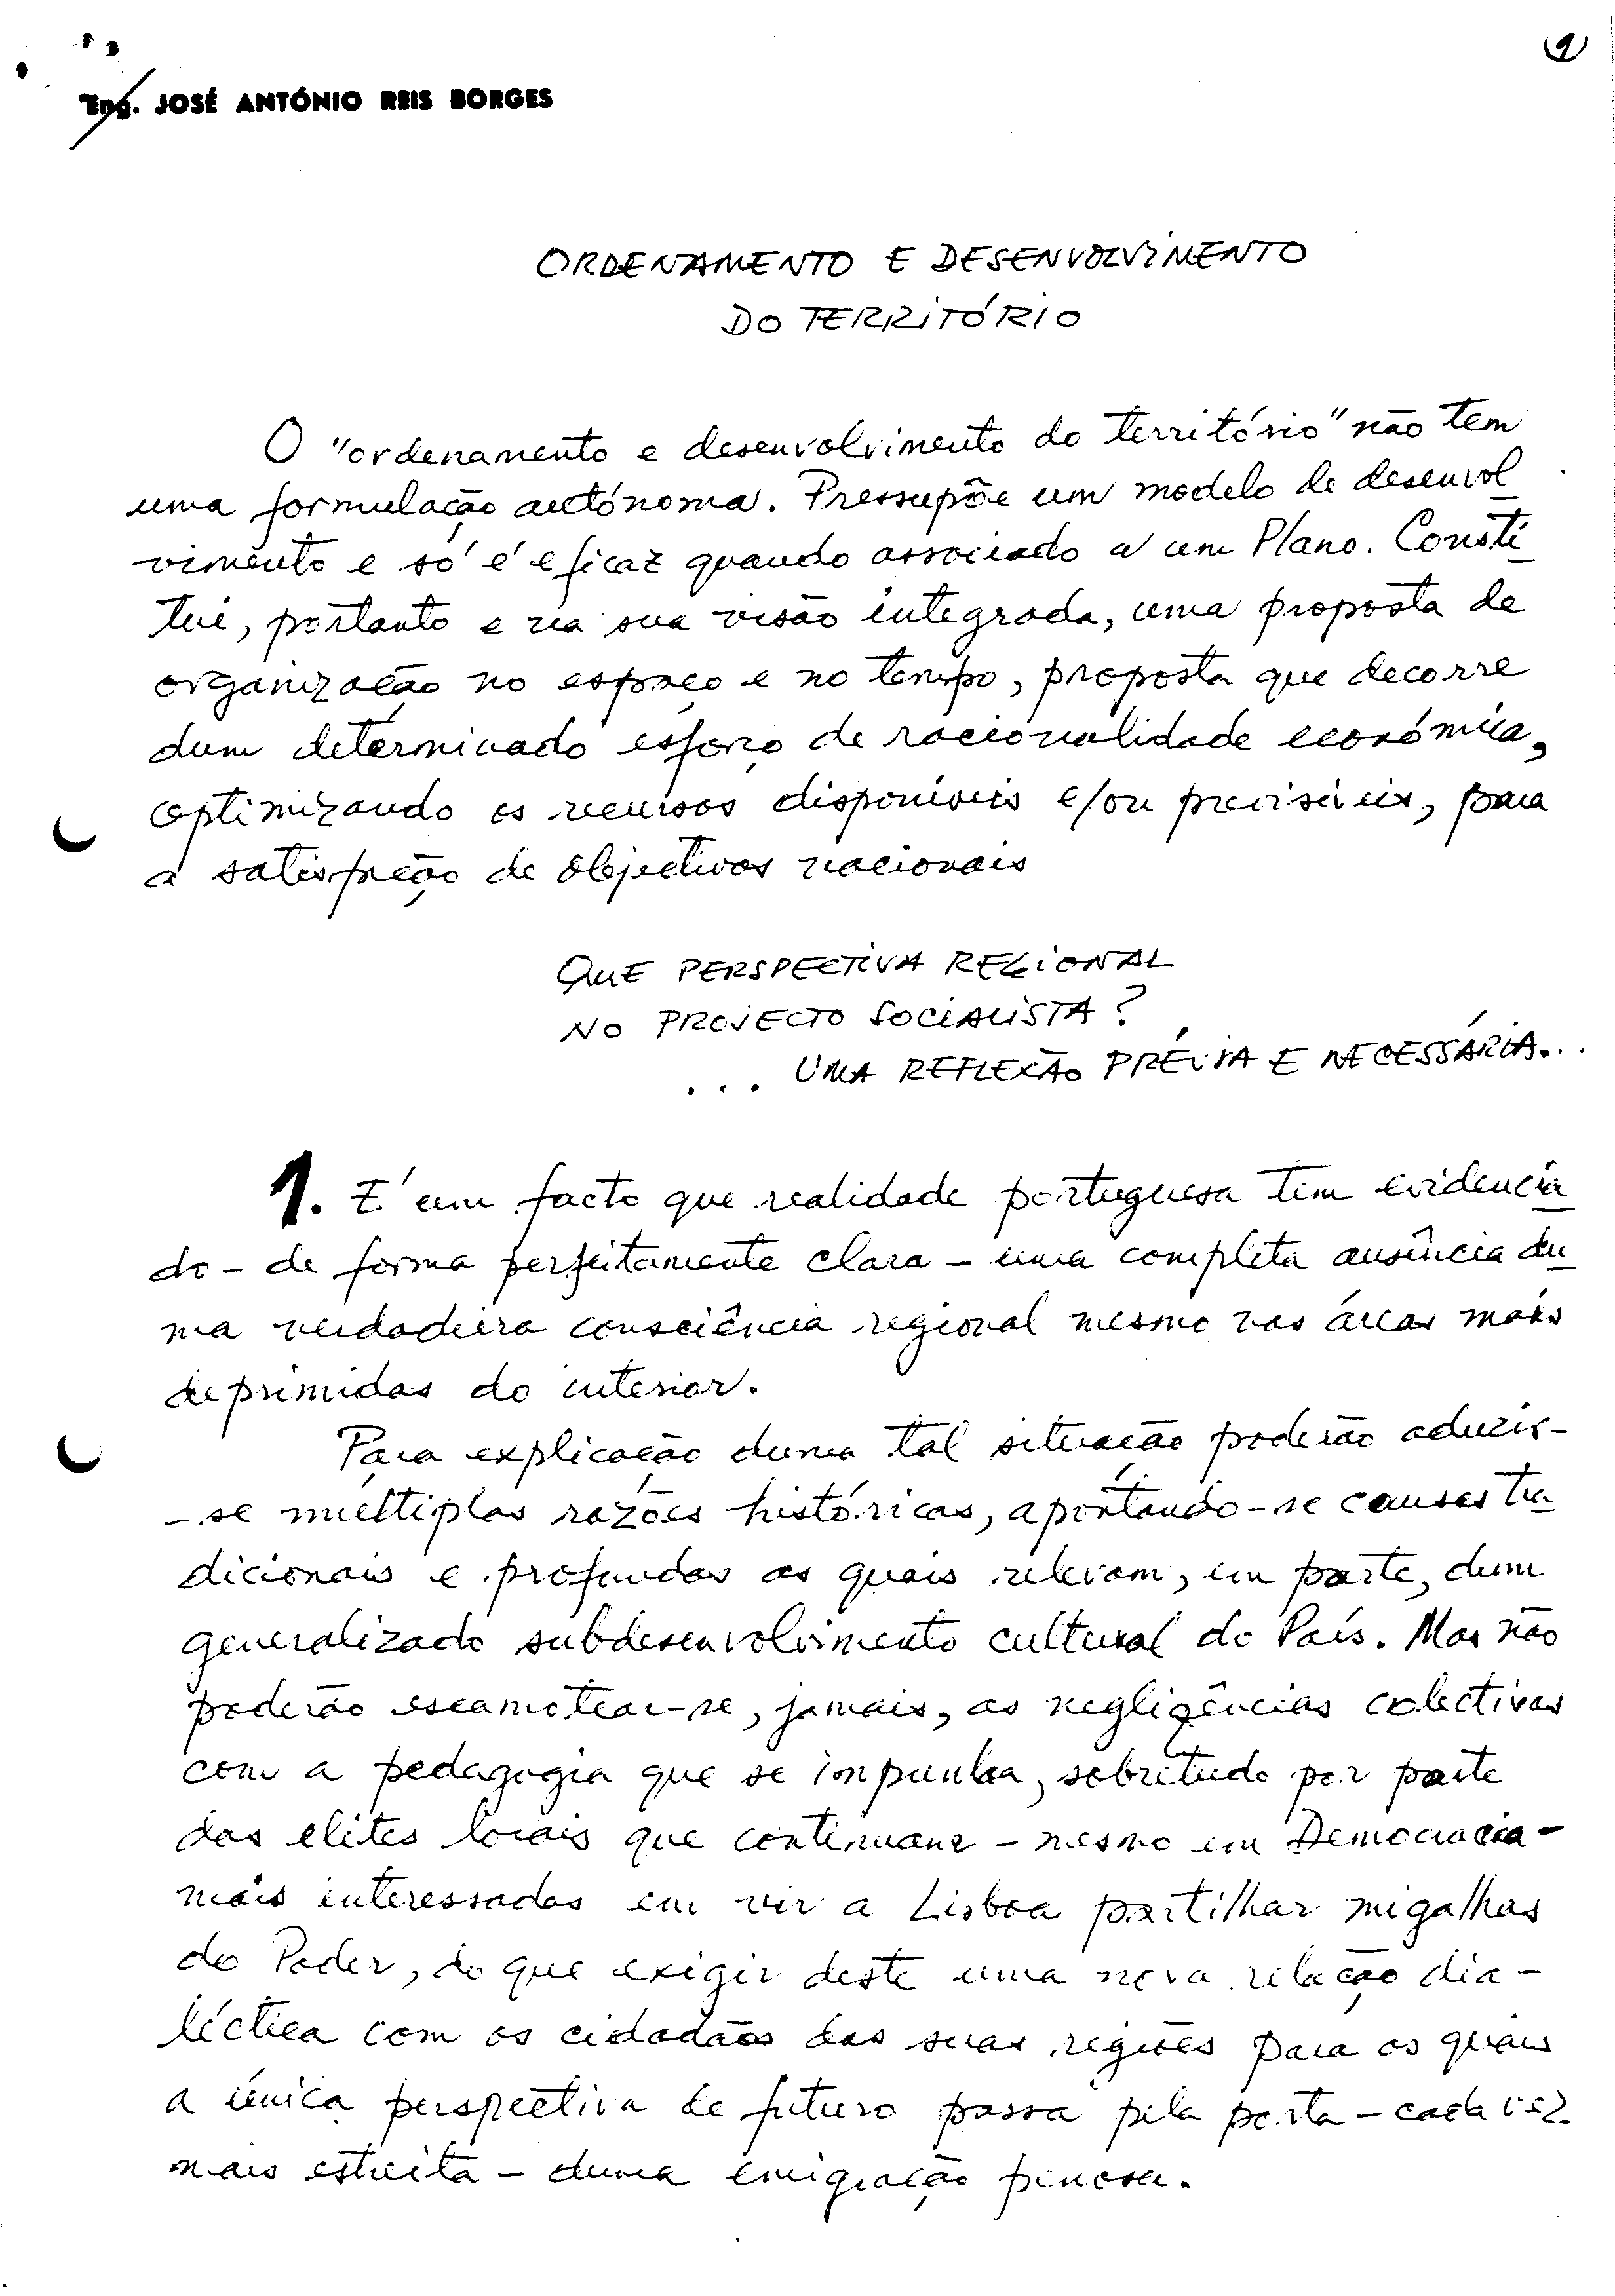 1
Eng. JOSÉ ANTÓNIO REIS BORGES
ORDENAMENTO E DESENVOLVIMENTO
DO TERRITÓRIO
O "ordenamento e desenvolvimento do território" não tem
uma formulação autónoma. Pressupõe um modelo de desenvol
vimento e só é eficaz quando associado a um Plano. Consti
tui, portanto e na sua visão integrada, uma proposta de
organização no espaço e no tempo, proposta que decorre
dum determinado esforço de racionalidade económica,
optimizando os recursos disponíveis e/ou previsíveis, para
a satisfação de objectivos nacionais
QUE PERSPECTIVA REGIONAL
NO PROJECTO SOCIALISTA?
... UMA REFLEXÃO PRÉVIA E NECESSÁRIA...
1. É um facto que realidade portuguesa tem evidencia
do - de forma perfeitamente clara - uma completa ausência du
ma verdadeira consciência regional mesmo nas áreas mais
deprimidas do interior.
Para explicação duma tal situação poderão aduzir-
-se múltiplas razões históricas, apontando-se causas tra
dicionais e profundas as quais relevam, em parte, dum
generalizado subdesenvolvimento cultural do País. Mas não
poderão escamotear-se, jamais, as negligências colectivas
com a pedagogia que se impunha, sobretudo por parte
das elites locais que continuam - mesmo em Democracia -
mais interessadas em vir a Lisboa partilhar migalhas
do Poder, do que exigir deste uma nova relação dia-
léctica com os cidadãos das suas regiões para os quais
a única perspectiva de futuro passa pela porta - cada vez
mais estreita - duma emigração penosa.